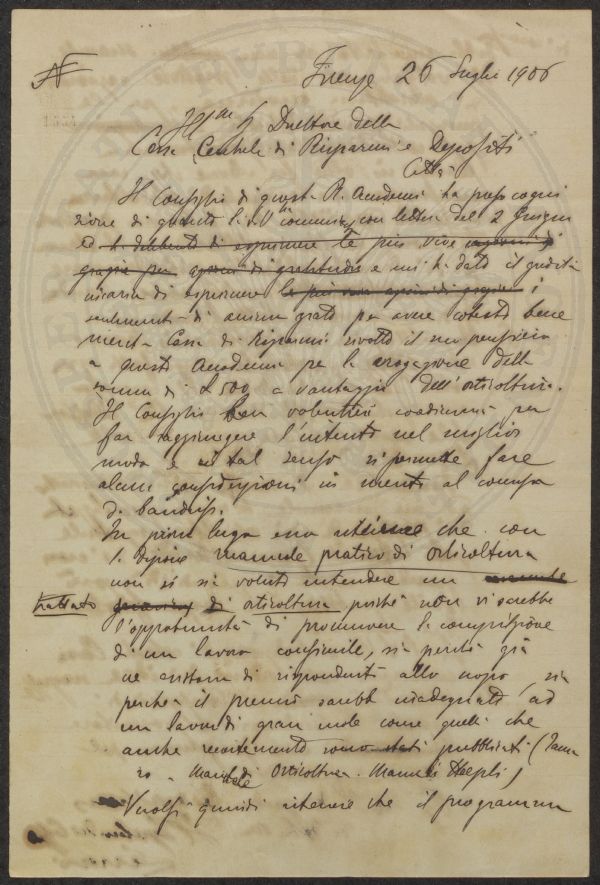 Firenze 26 Luglio 1906
Ill.mo S. Direttore della
Cassa Centrale di Risparmi e Depositi
Città
Il Consiglio di questa R. Accademia ha preso cogni
zione di quanto la S.V. in comunicava con lettera del 2 Giugno
ed ha deliberato di esprimere le più vive
grazie per di gratitudine e mi ha dato il gradito
incarico di esprimere le più vive i
sentimenti di animo grato per avere cotesta bene
merita Cassa di Risparmi rivolto il suo pensiero
a questa Accademia per la erogazione della
somma di L 500 a vantaggio dell'orticoltura.
Il Consiglio ben volentieri coadiuverà per
far raggiungere l'intento nel miglior
modo e in tal senso si permette fare
alcune considerazioni in merito al concorso
da bandirsi.
In primo luogo esso ritiene che con
la dizione manuale pratico di orticoltura
non si sia voluto intendere un
trattato di orticoltura poichè non vi sarebbe
l'opportunità di promuovere la compilazione
di un lavoro consimile, sia perchè già
ne esistono di rispondenti allo scopo, sia
perchè il premio sarebbe inadeguato ad
un lavoro di gran mole come quelli che
anche recentemente sono stati pubblicati (Tama
ro - Manuale di Orticoltura - Manuali Hoepli)
Vuolsi quindi ritenere che il programma